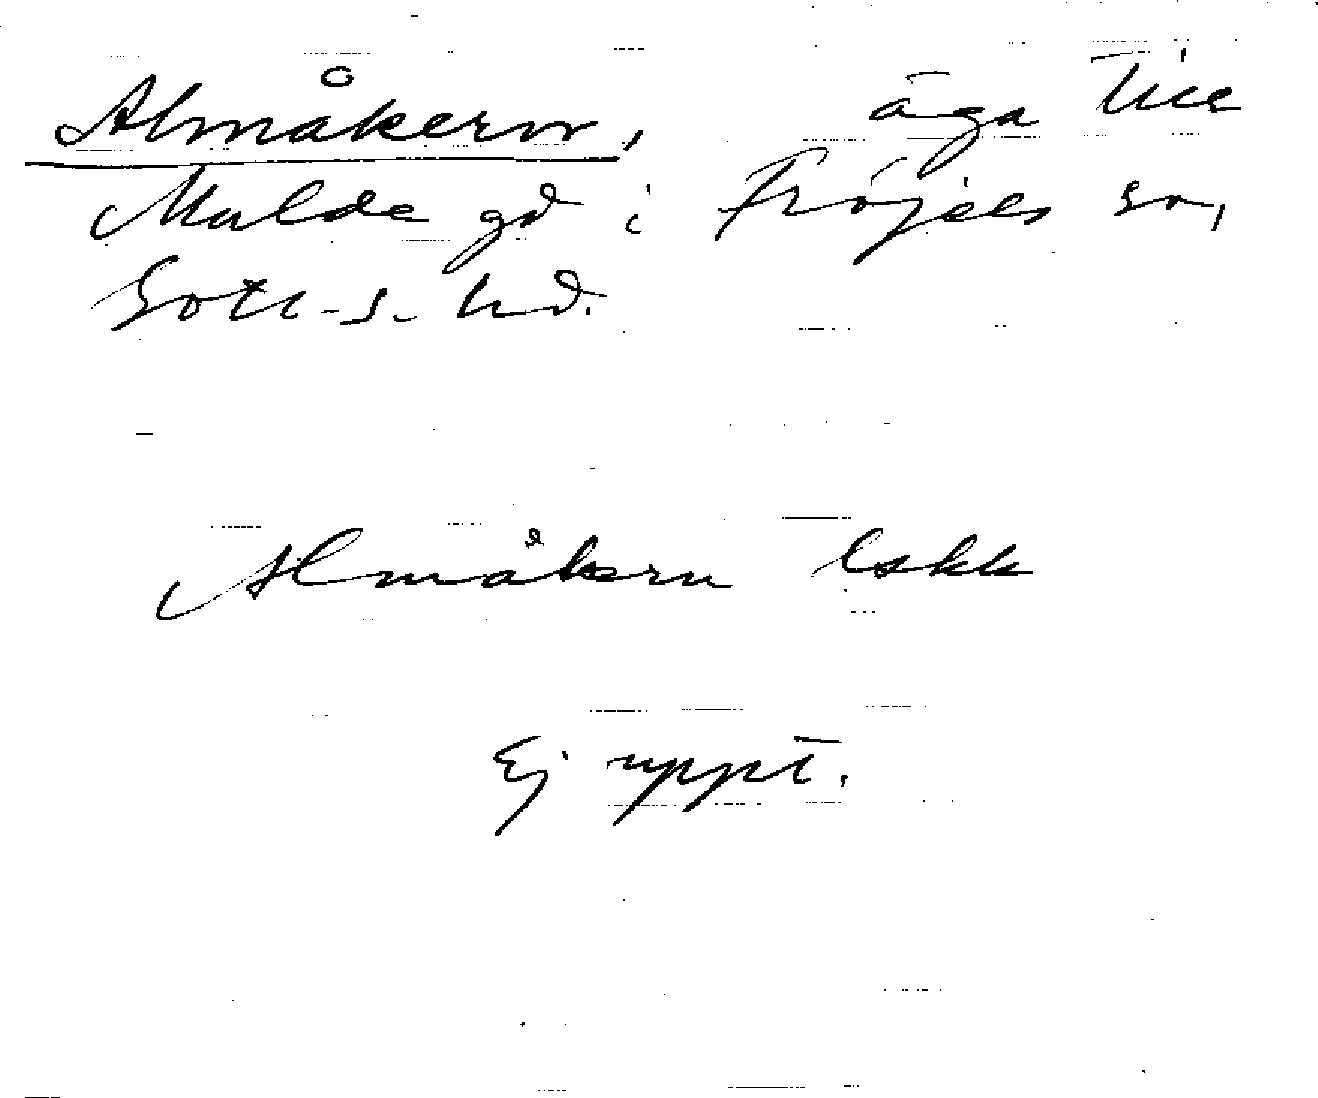 Almåkern, äga till
Mulde gd i Fröjels sn,
Gotl-s. hd.
Almåkern Lskk
Ej uppt.